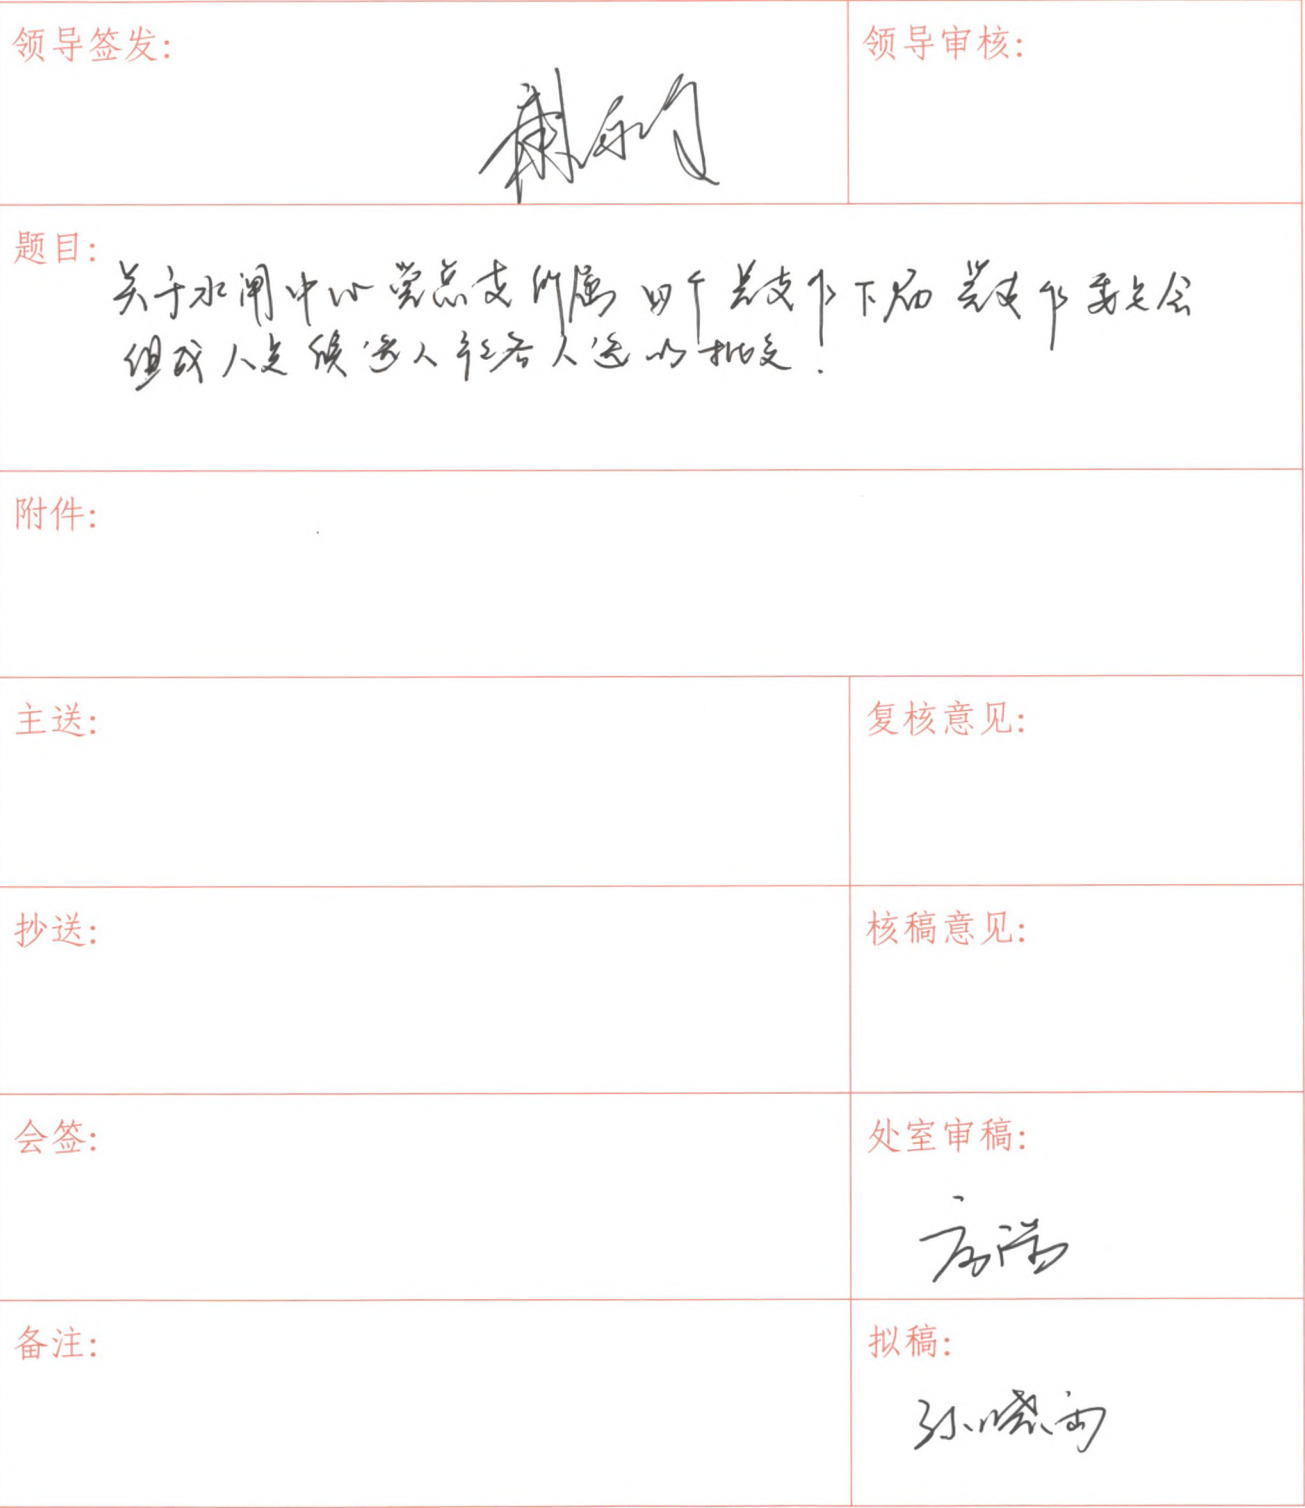 领导签发:
领导审核:
题目:
关于水闸中心党总支所属四个党支部下届党支部委员会
组成人员候选人预备人选的批复.
附件:
主送:
复核意见:
抄送:
核稿意见:
会签:
处室审稿:
备注:
拟稿:
孙晓雨